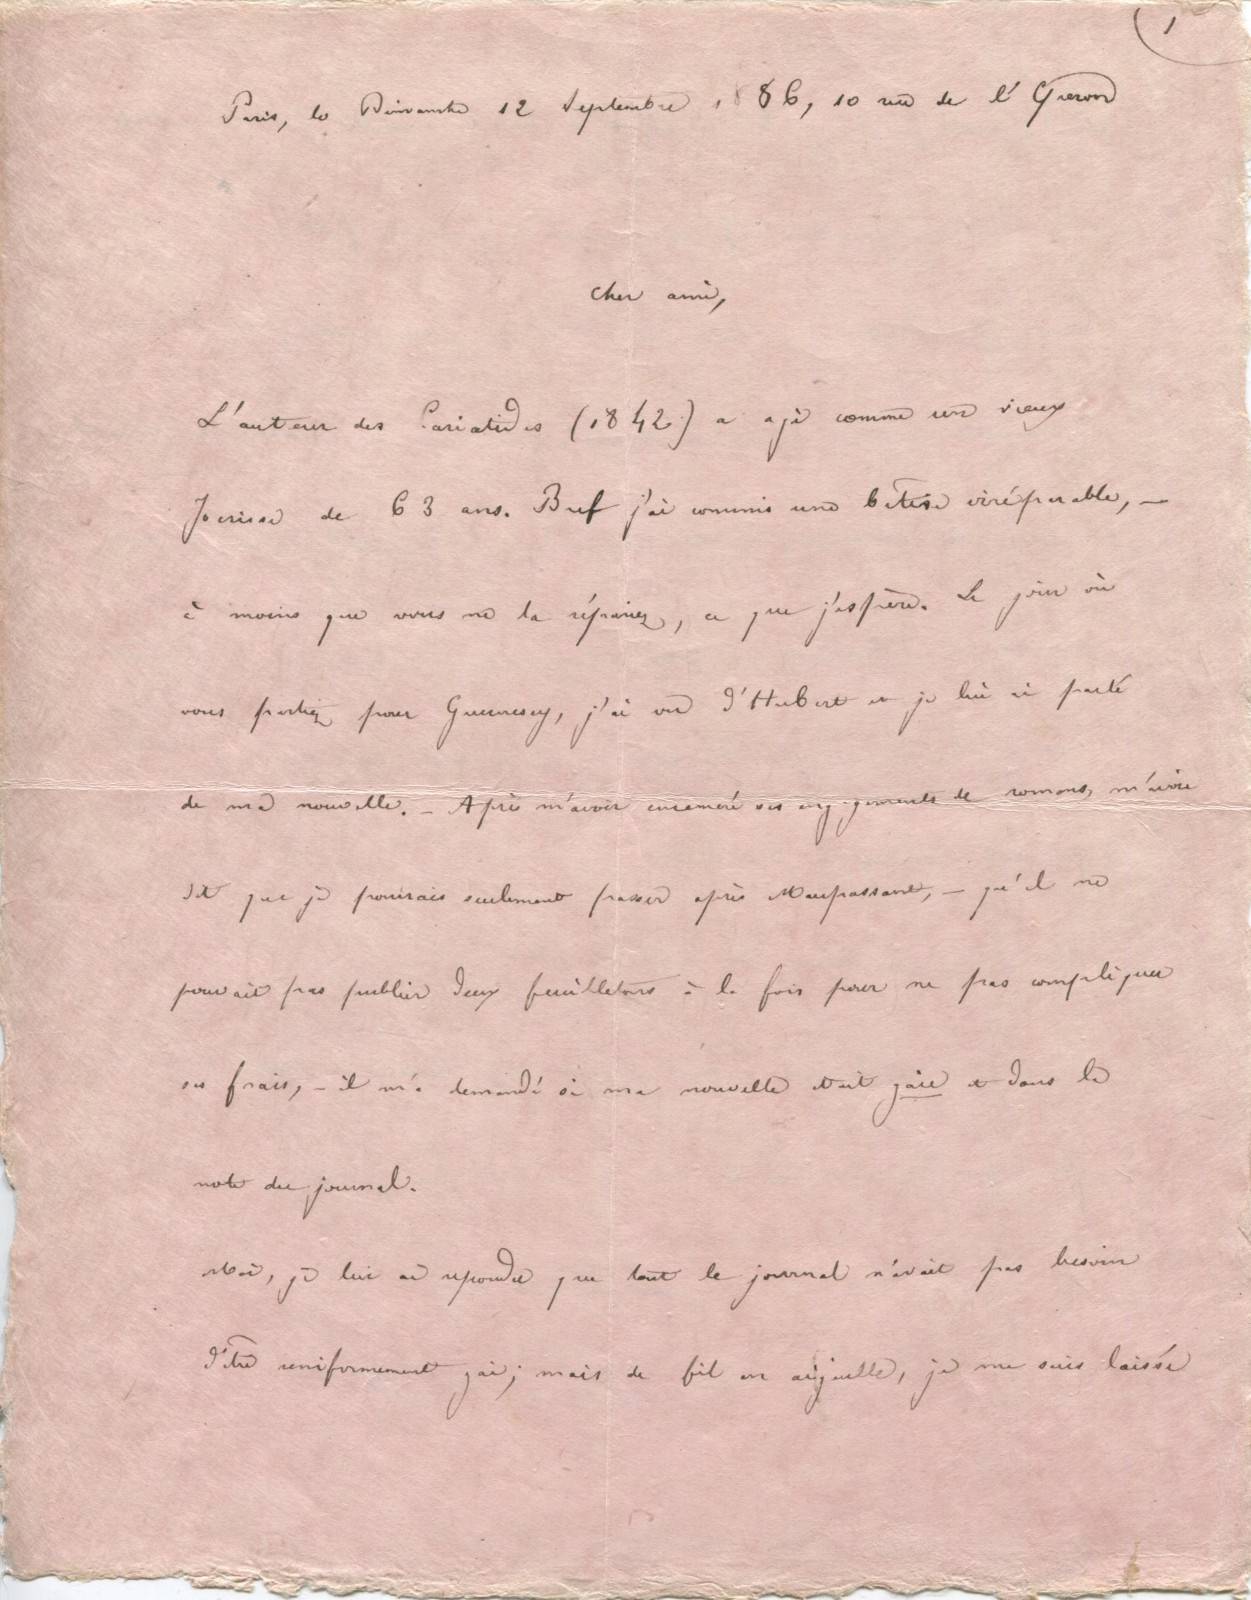 1
Paris, le Dimanche 12 Septembre 1886, 10 rue de l'Eperon
Cher ami,
L'auteur des Cariatides (1842) a agi comme un vieux
Jocrisse de 63 ans. Bref j'ai commis une bêtise irréparable, —
à moins que vous ne la répariez, ce que j'espère. Le jour où
vous partiez pour Guernesey, j'ai vu d'Hubert et je lui ai parlé
de ma nouvelle. — Après m'avoir énuméré ses engagements de romans, m'avoir
dit que je pourrais seulement passer après Maupassant, — qu'il ne
pouvait pas publier deux feuilletons à la fois pour ne pas compliquer
ses frais, — il m'a demandé si ma nouvelle était gaie et dans la
note du journal.
Moi, je lui ai répondu que tout le journal n'avait pas besoin
d'être uniformement gai; mais de fil en aiguille, je me suis laissé